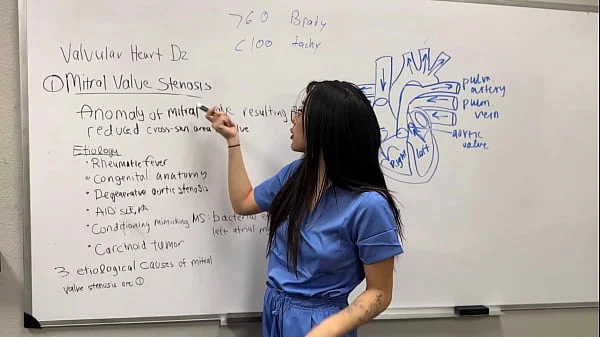 >60 Brady
<100 tachy
Valvular Heart Dz
① Mitral Valve Stenosis
Anomaly of mitral resulting
reduced cross-sxn area
Etiology
• Rheumatic fever
• Congenital anatomy
• Degenerative aortic stenosis
• AID
• Conditioning mimicking MS: bacterial
left atrial
• Carcinoid tumor
3 etiological causes of mitral
valve stenosis are ①
pulm.
artery
pulm.
vein
aortic
valve
Right
left